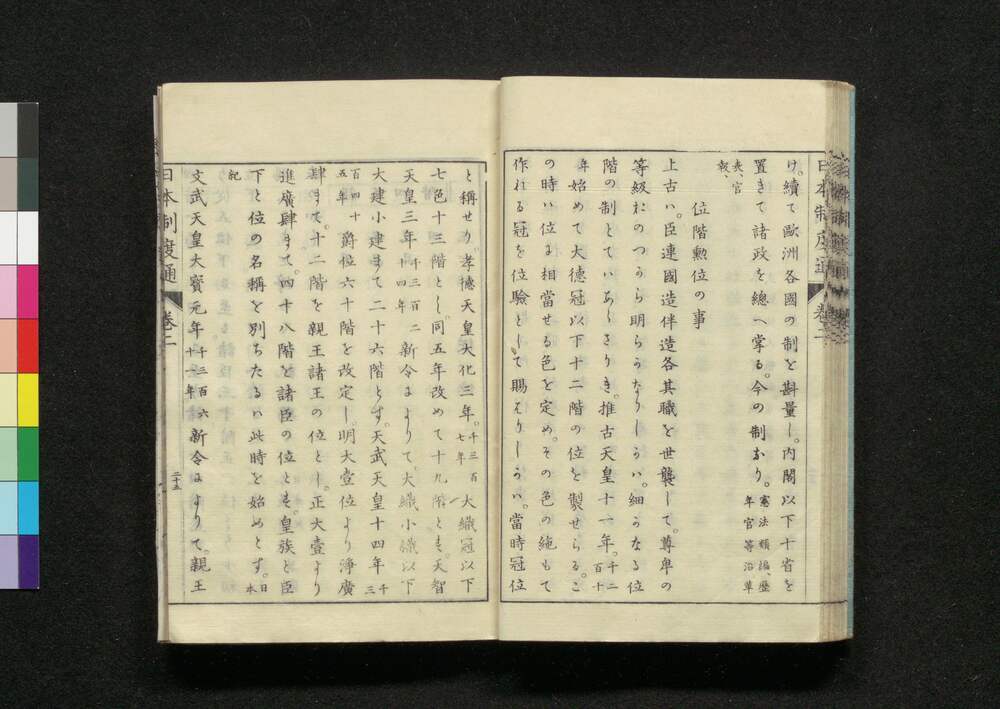 け。續て歐洲各國の制を斟量し。内閣以下十省を
置きて諸政を總べ掌る。今の制なり。憲法類編、歴
年官等沿革
表、官
報、
位階勲位の事
上古ハ。臣連國造伴造各其職を世襲して。尊卑の
等級おのつから明らかなりしかハ。細かなる位
階の制とてハあらさりき。推古天皇十一年。千二
百十
年始めて大德冠以下十二階の位を製せらる。こ
の時ハ位は相當せる色を定め。その色の絁もて
作れる冠を位驗として賜はりしかハ。當時冠位
と稱せり。孝德天皇大化三年。千三百
七年大織冠以下
七色十三階とし。同五年改めて十九階とす。天智
天皇三年。千三百二
十四年新令によりて。大織小織以下
大建小建まて二十六階とす。天武天皇十四年千
三
百四十
五年爵位六十階を改定し。明大壹位より淨廣
肆まて。十二階を親王諸王の位とし。正大壹より
進廣肆まて。四十八階を諸臣の位とす。皇族と臣
下と位の名稱を別ちたるハ此時を始めとす。日
本
紀
文武天皇大寶元年。千三百六
十一年新令によりて。親王
日本制度通
卷二
二十五